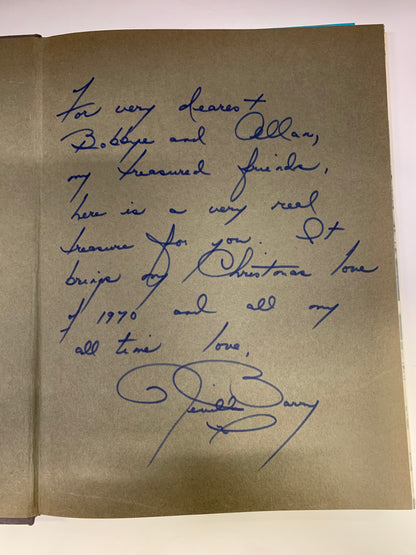 For very dearest
Bobbye and Allan,
my treasured friends,
here is a very real
treasure for you. It
brings my Christmas love
of 1970 and all my
all time love,
Barry